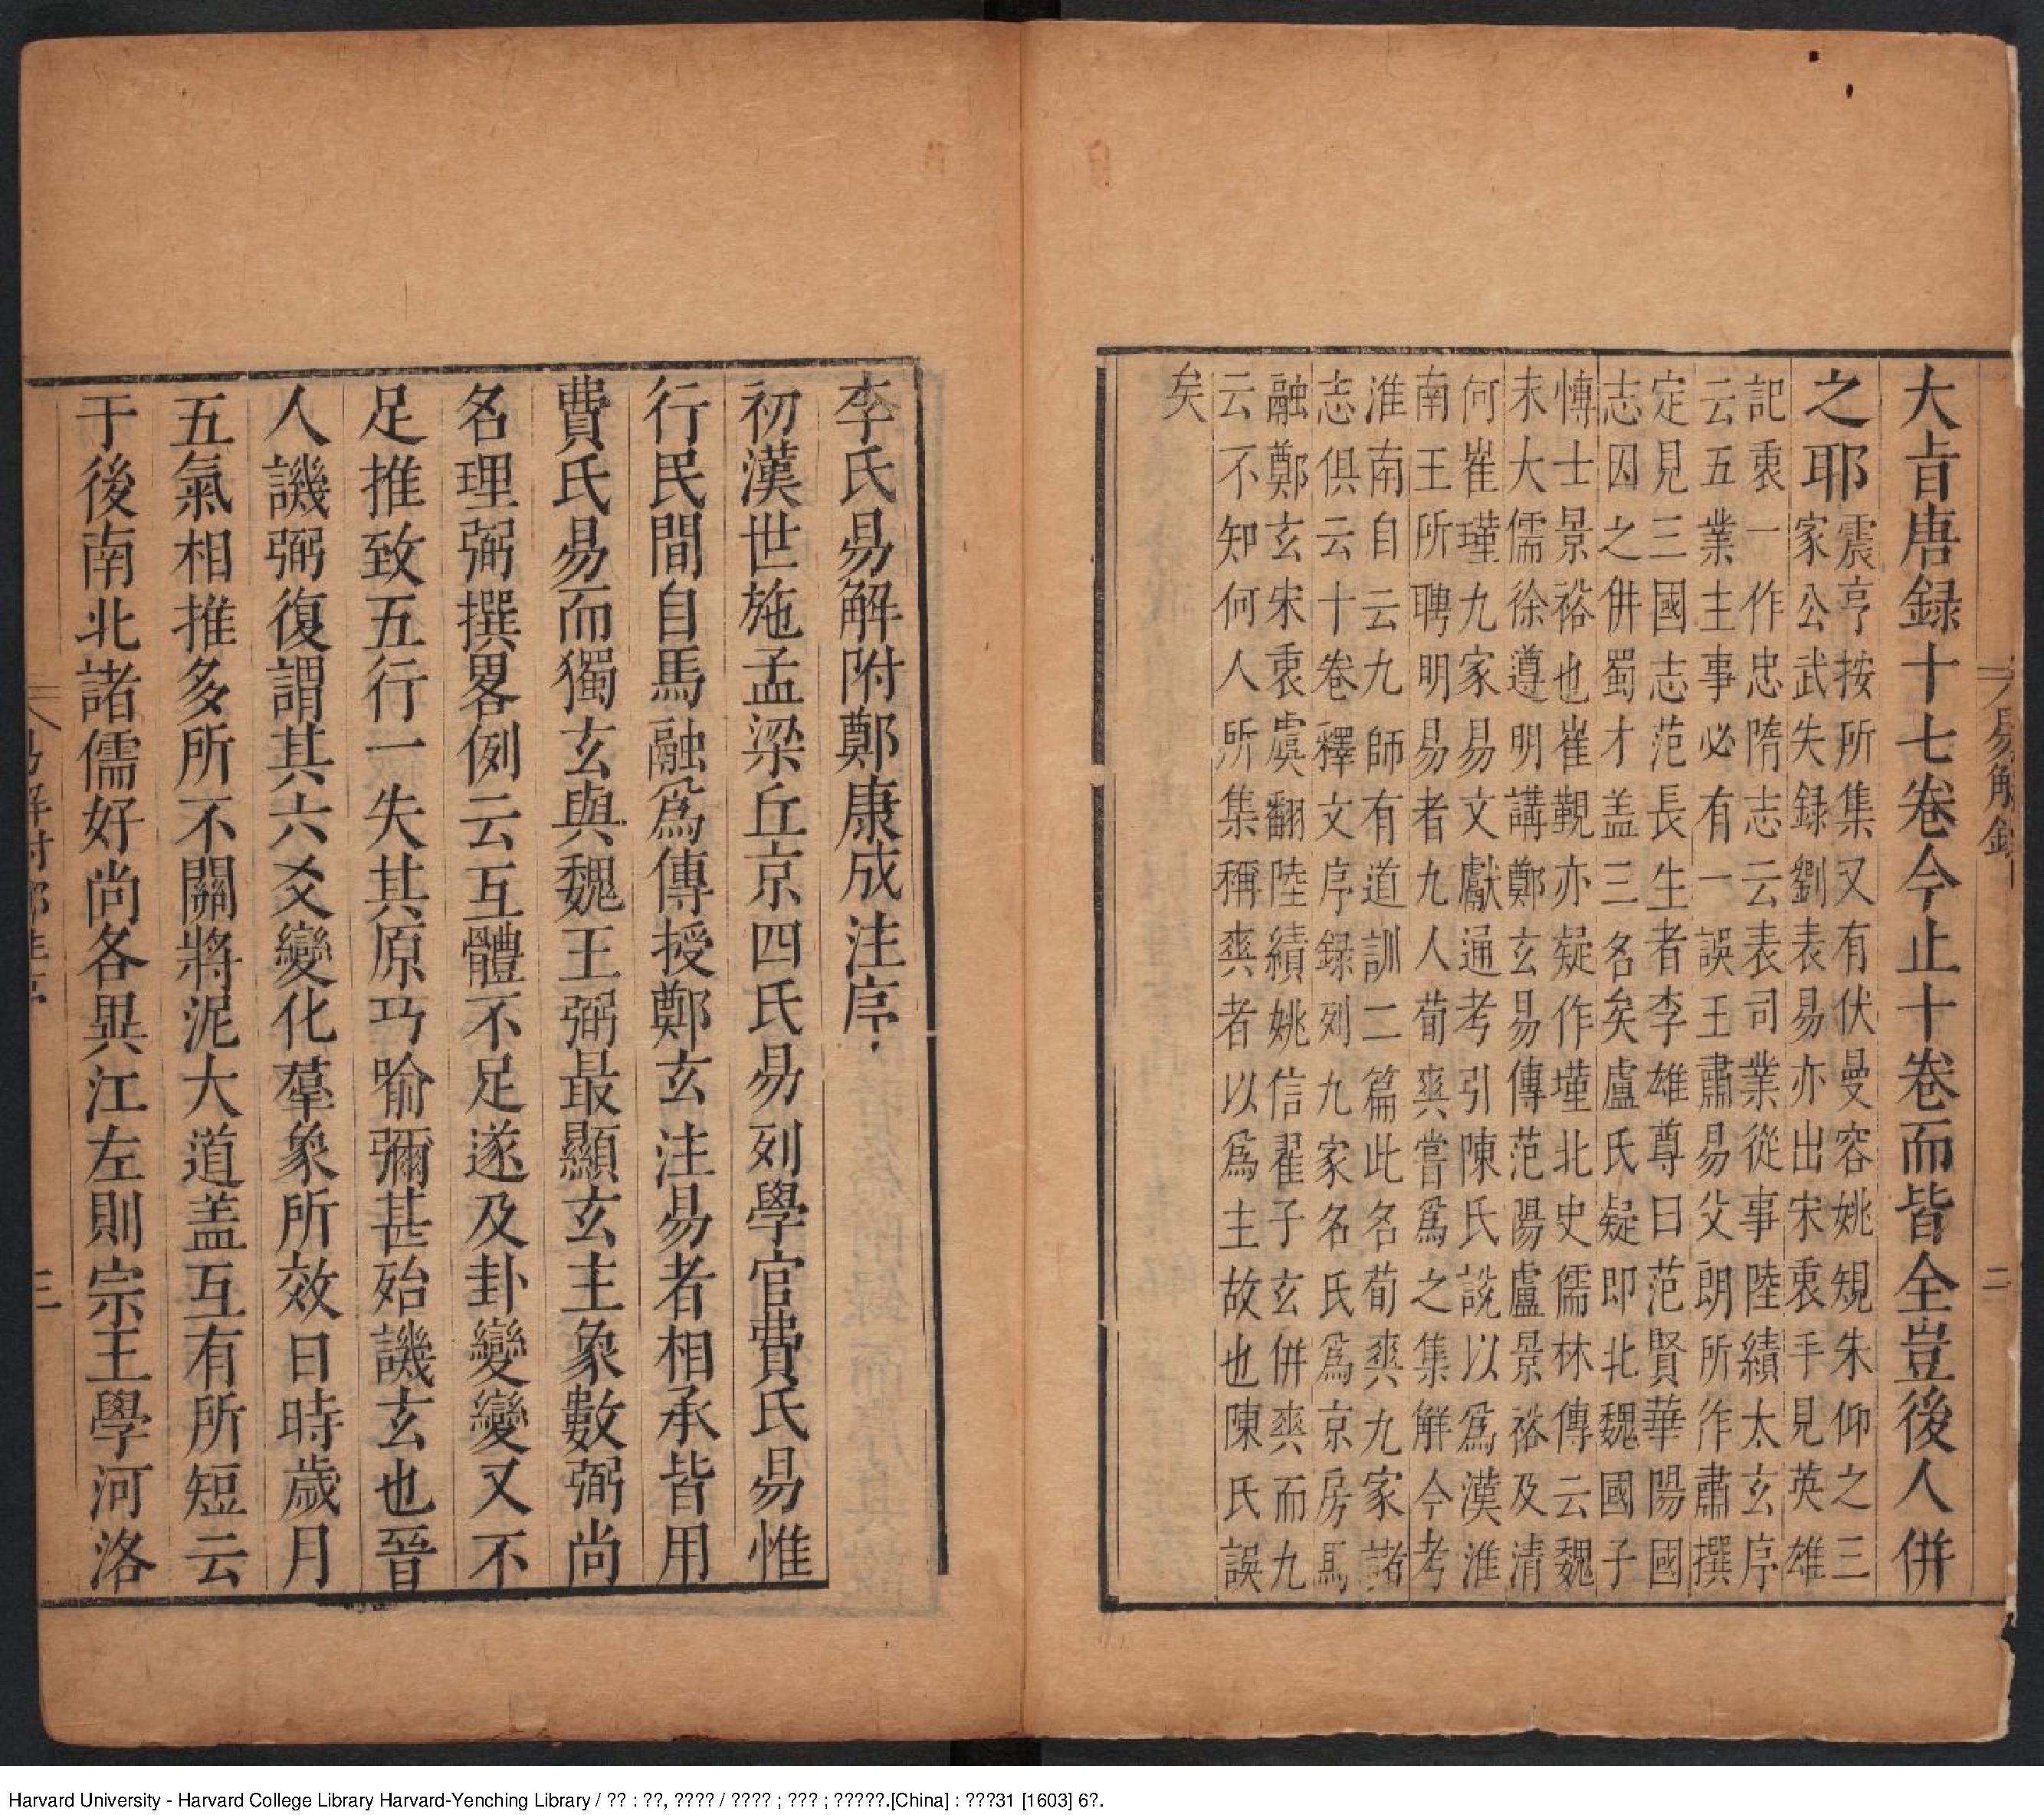 易解錄 二
大㫖唐録十七卷今止十卷而皆全豈後人併
之耶
震亨按所集又有伏曼容姚規朱仰之三
家公武失録劉表易亦出宋衷手見英雄
記衷一作忠隋志云表司業從事陸績太玄序
云五業主事必有一誤王肅易父朗所作肅撰
定見三國志范長生者李雄尊曰范賢華陽國
志囚之併蜀才盖三名矣盧氏疑即北魏國子
博士景裕也崔覲亦疑作墐北史儒林傳云魏
末大儒徐遵明講鄭玄易傳范陽盧景裕及清
何崔瑾九家易文獻通考引陳氏說以爲漢淮
南王所聘明易者九人荀爽嘗爲之集解今考
淮南自云九師有道訓二篇此名荀爽九家諸
志俱云十卷釋文序録列九家名氏爲京房馬
融鄭玄宋衷虞翻陸績姚信翟子玄併爽而九
云不知何人所集稱爽者以爲主故也陳氏誤
矣
李氏易解附鄭康成注序
初漢世施孟梁丘京四氏易列學官費氏易惟
行民間自馬融爲傳授鄭玄注易者相承皆用
費氏易而獨玄與魏王弼最顯玄主象數弼尚
名理弼撰畧例云互體不足遂及卦變變又不
足推致五行一失其原巧喻彌甚殆譏玄也晉
人譏弼復謂其六爻變化羣象所效日時歲月
五氣相推多所不關將泥大道盖互有所短云
于後南北諸儒好尚各異江左則宗王學河洛
易解附鄭注序 三
Harvard University - Harvard College Library Harvard-Yenching Library / ?? : ??, ???? / ???? ; ??? ; ?????.[China] : ???31 [1603] 6?.